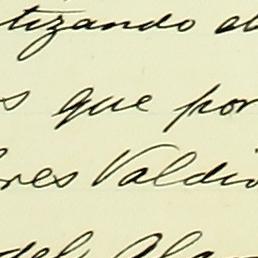 tizando el
s que por
res Valdiv
del Ala